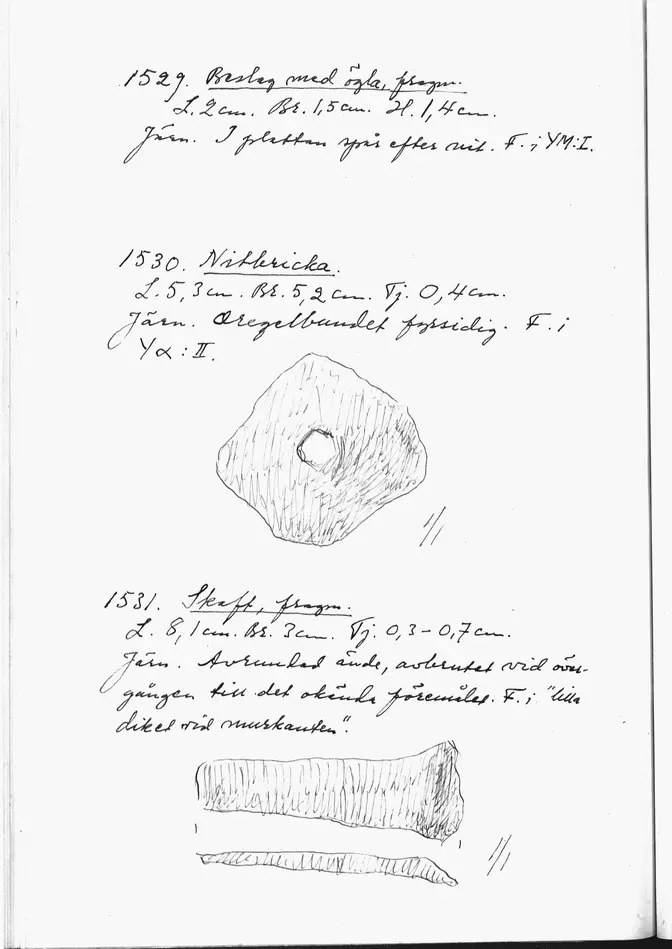 1529. Beslag med ögla, fragm.
L. 2 cm. Br. 1,5 cm. H. 1,4 cm.
Järn. I plattan spår efter nit. F. i YM:I.
1530. Nitbricka.
L. 5,3 cm. Br. 5,2 cm. Tj. 0,4 cm.
Järn. Oregelbundet fyrsidig. F. i
Yα : II.
1/1
1531. Skaft, fragm.
L. 8,1 cm. Br. 3 cm. Tj. 0,3 – 0,7 cm.
Järn. Avrundad ände, avbrutet vid över-
gången till det okända föremålet. F. i "lilla
diket vid murkanten".
1/1